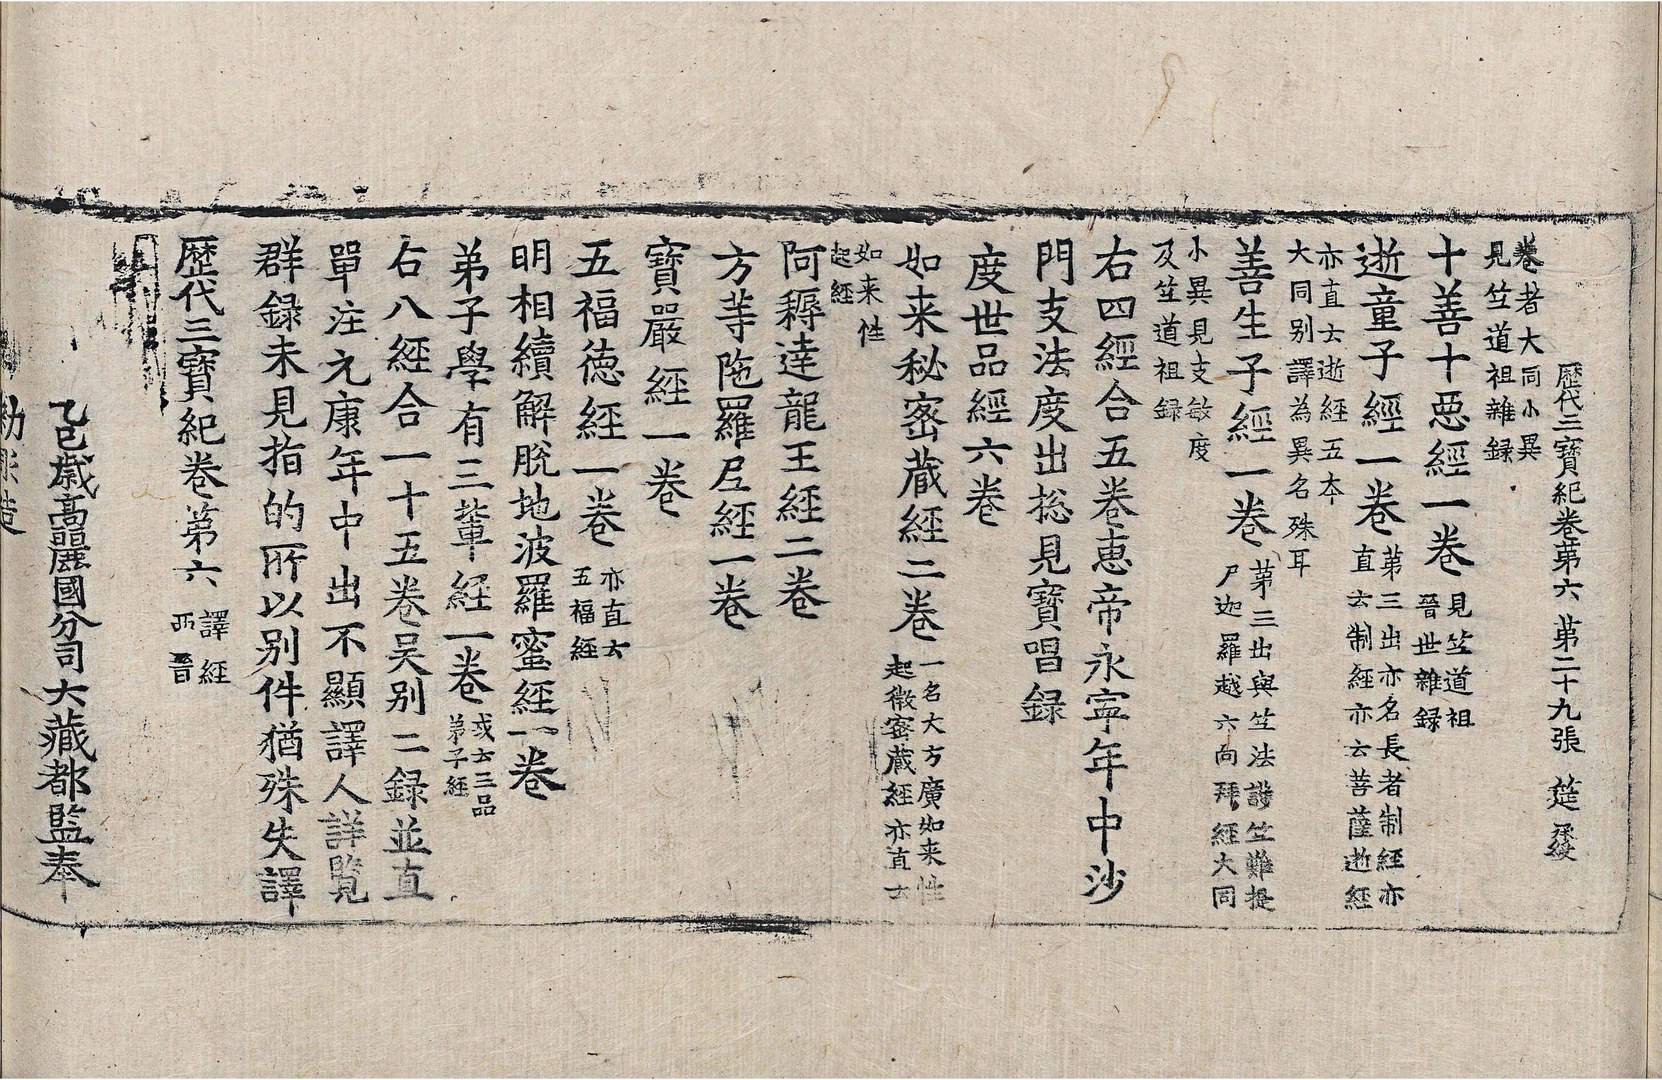 歷代三寶紀卷第六 第二十九張 筵
卷者大同小異
見竺道祖雜録
十善十惡經一卷 見竺道祖
晉世雜録
逝童子經一卷 第三出亦名長者制經亦
直云制經亦云菩薩逝經
亦直云逝經五本
大同别譯為異名殊耳
善生子經一卷 第三出與竺法護竺難提
尸迦羅越六向拜經大同
小異見支敏度
及竺道祖録
右四經合五卷惠帝永寧年中沙
門支法度出揔見寶唱録
度世品經六卷
如来秘密蔵經二卷 一名大方廣如来性
起微密蔵經亦直云
如来性
起經
阿耨達龍王經二卷
方等陁羅尼經一卷
寶嚴經一卷
五福德經一卷 亦直云
五福經
明相續解脱地波羅蜜經一卷
弟子學有三輩經一卷 或云三品
弟子經
右八經合一十五卷吴别二録並直
單注元康年中出不顯譯人詳覽
群録未見指的所以别件猶殊失譯
歷代三寶紀卷第六 譯經
西晉
乙巳歲高麗國分司大藏都監奉
勅彫造